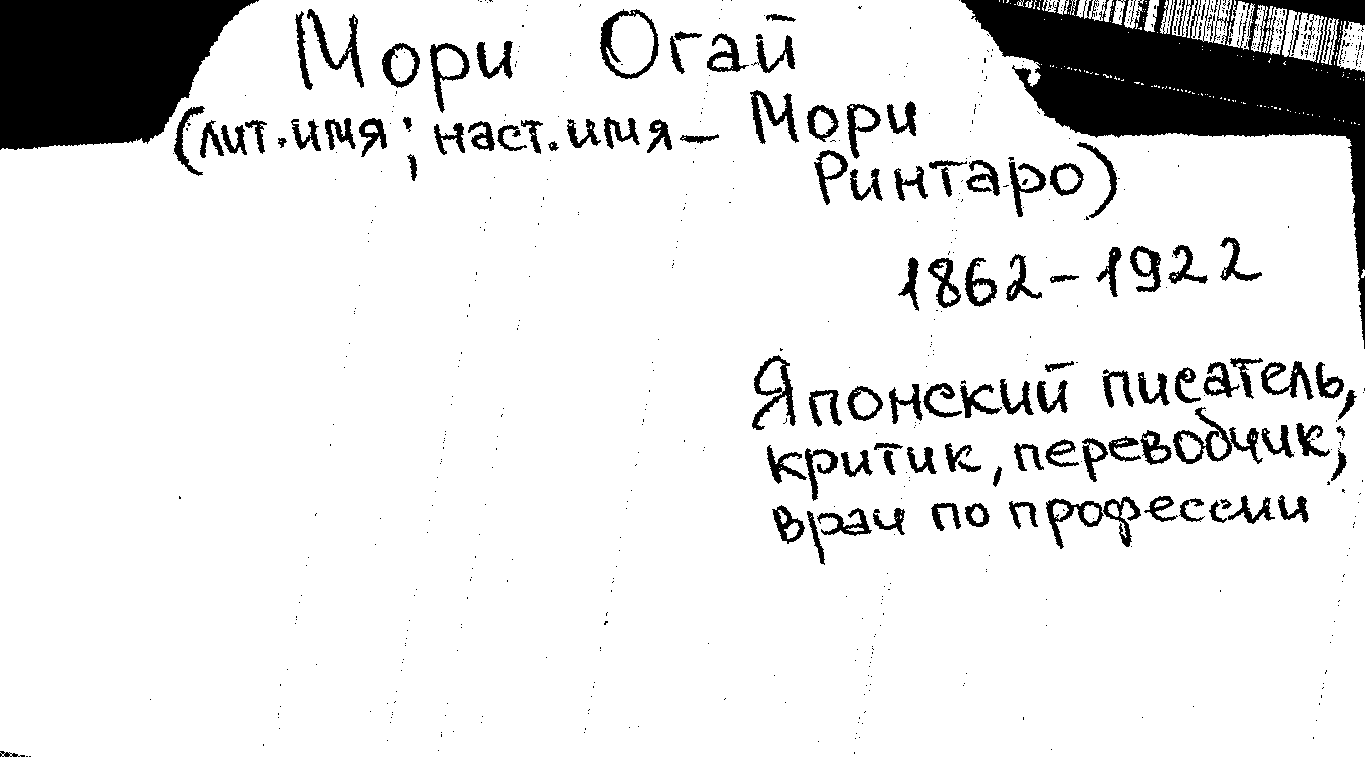 Мори Огай
(лит.имя; наст.имя – Мори
Ринтаро)
1862-1922
Японский писатель,
критик, переводчик;
врач по профессии